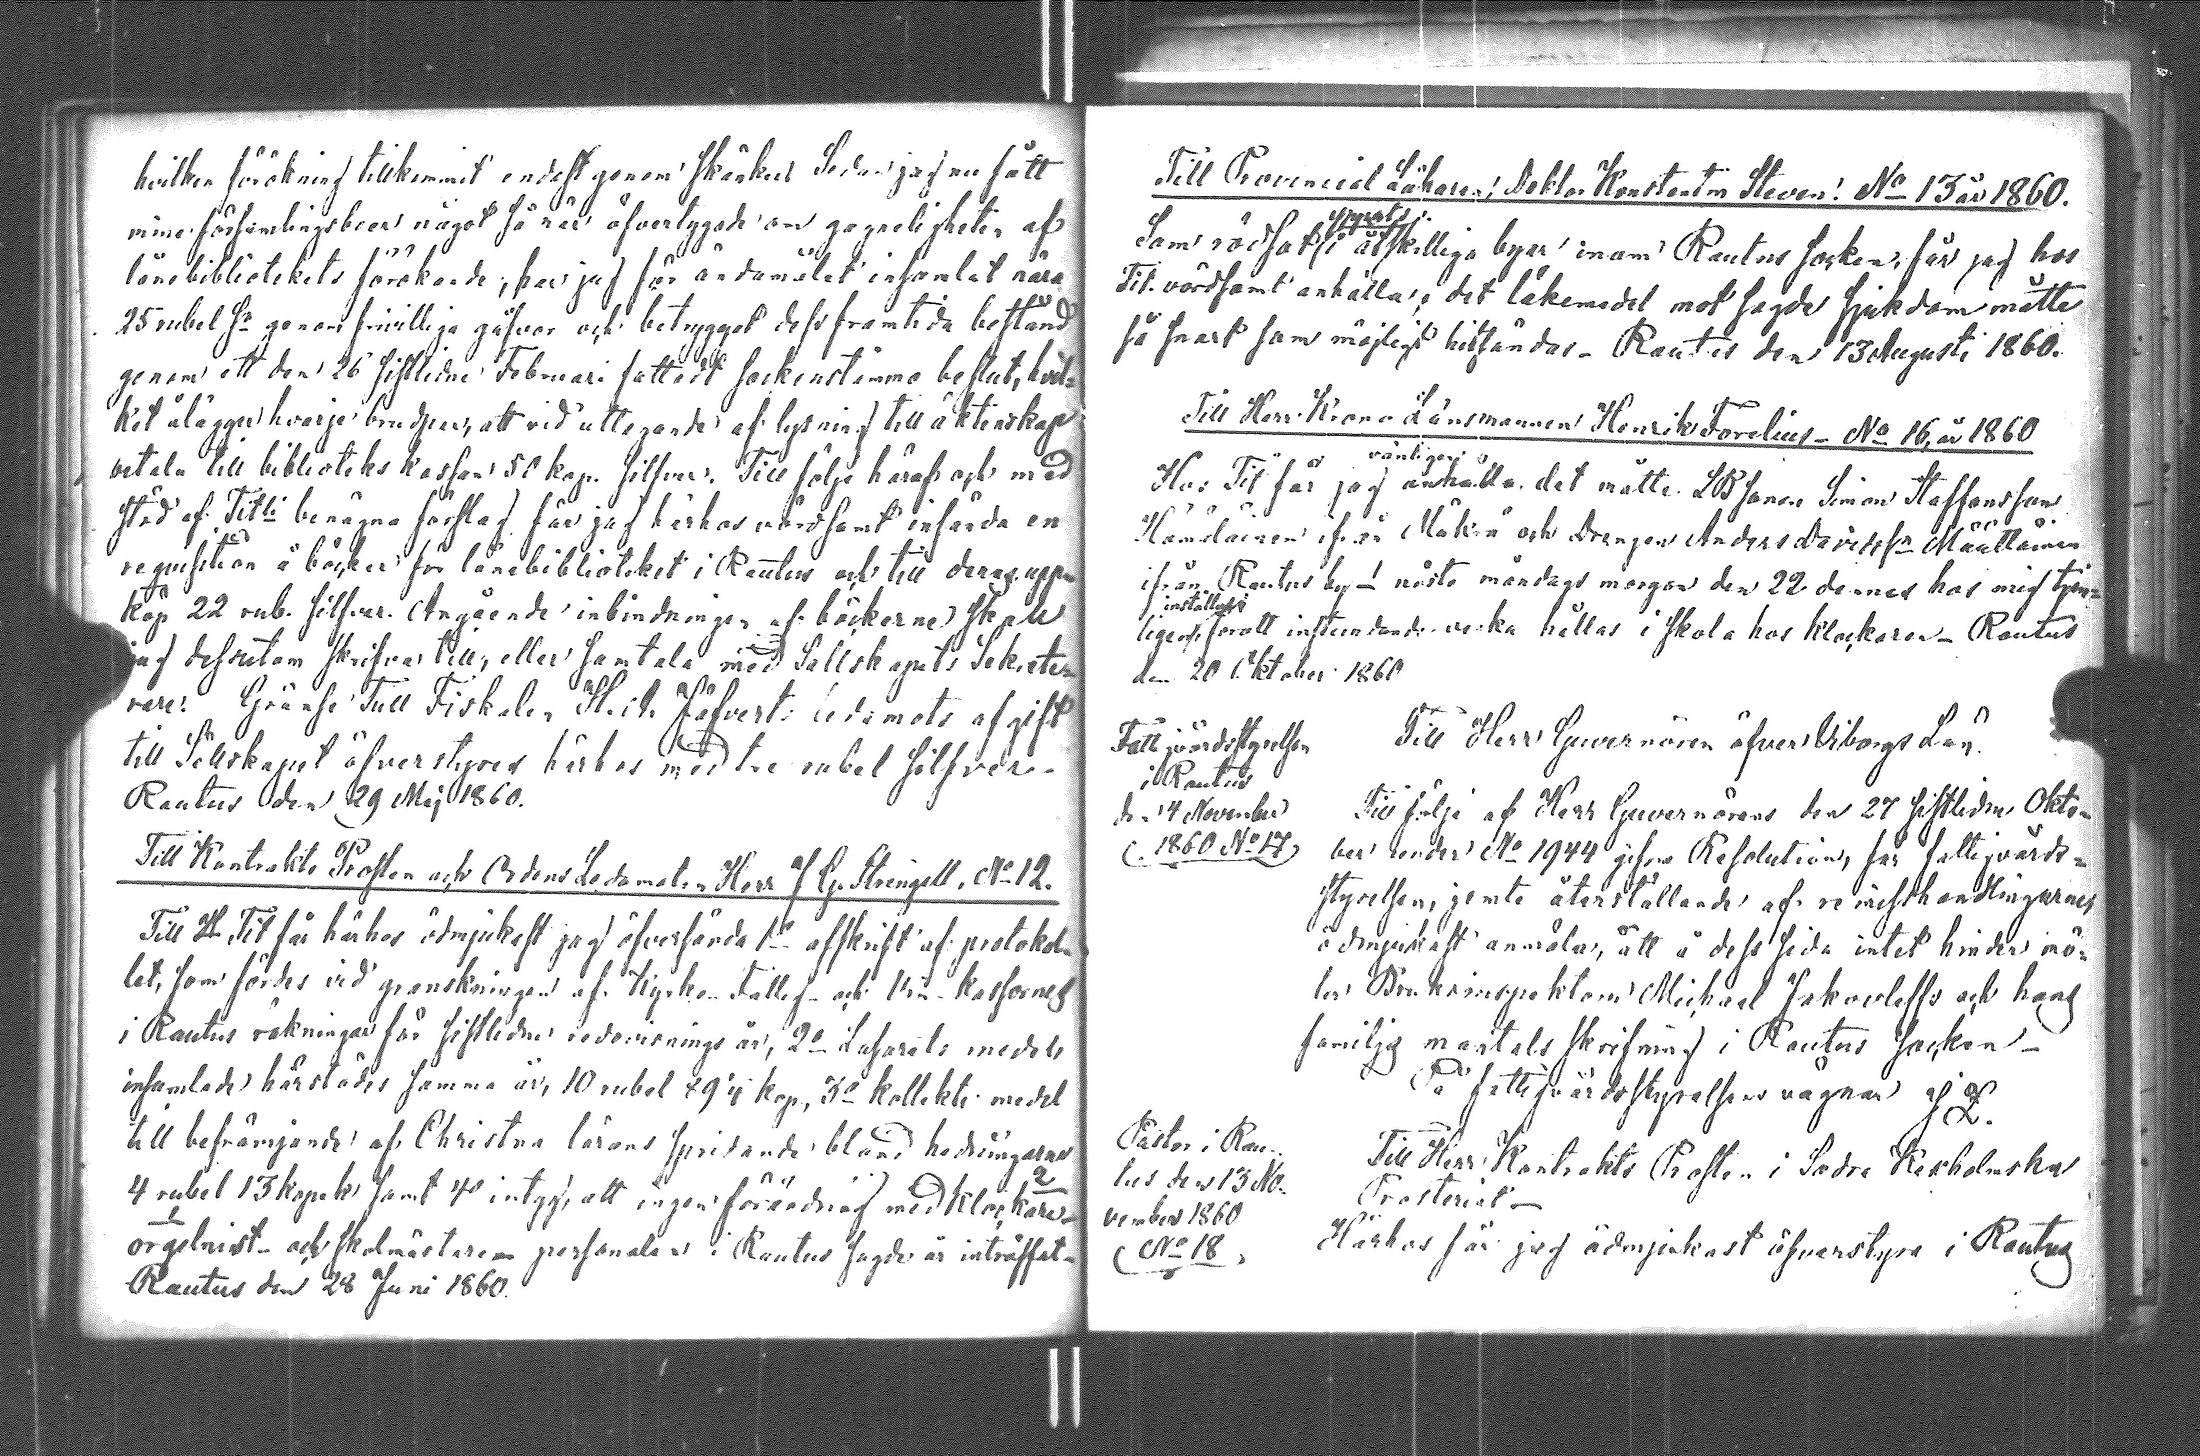 hvilken förökning tillkommit endast genom skänker. Sedan jag nu fått
mine församlingsboer något så när öfvertygade om gagneligheten af
lånebibliotekets förökande, har jag för ändamålet insamlat nära
25 rubel Sr genom frivilliga gåfvor och betryggat dess framtida bestånd
genom ett den 26 sistlidne Februari fattadt sockenstämmo beslut, hvil-
ket ålägger hvarje brudpar, att vid uttagande af lysning till äktenskap
betala till biblioteks kassan 50 kop. silfver. Till följe häraf och med
stöd af Titli benägna förslag får jag härhos vördsamt insända en
reqvisition å böcker för lånebiblioteket i Rautus och till deras upp-
köp 22 rub. silfver. Angående inbindningen af böckerne skall
jag dessutom skrifva till, eller samtala med Sällskapets Sekrete-
rare. Gränse Tull Fiskalen ledamots afgift
till Sällskapet öfverstyres härhos med tre rubel silfver.
Rautus den 29 Maj 1860.
Till Kontrakts Prosten och Ordens Ledamoten Herr J G. Strengell. No 12.
Till H Tit får härhos ödmjukast jag öfversända 1o afskrift af protokol-
let, som fördes vid granskningen af Kyrko- Fattig- och kassornes
i Rautus räkningar för sistlidne redovisnings år, 2o Lasaretts medel
insamlade härstädes samma år, 10 rubel 89 ½ kop, 3o kollekt medel
till befrämjande af Christna lärans spridande bland hedningarne
4 rubel 13 kopek samt 4o intyg, att ingen förändring med klockare- 2
1 orgelnist- och skolmästare personalen i Rautus sagde år inträffat.
Rautus den 28 Juni 1860.
Till Provincial Läkaren, Doktor Konstantin Steven. No 13 år 1860.
yppats
Som rödsot i åtskilliga byar inom Rautus socken, får jag hos
Tit. vördsamt anhålla, det läkemedel mot sagde sjukdom måtte
så snart som möjligt hitsändas. Rautus den 13 Augusti 1860.
Till Herr Krono Länsmannen Henrik Forelius. No 16, år 1860
vänligen
Hos Tit får jag anhålla det måtte LBsonen Simon Staffansson
Hämäläinen ifrån Mäkrä och Drengen Anders Davidsson Määttäinen
ifrån Rautus by nästa måndags morgon den 22 dennes hos mig
inställas
för att instundande vecka hållas i skola hos klockaren. Rautus
den 20 Oktober 1860
Fattigvårdsstyrelsen
i Rautus
den 4 November
1860 No 17
Till Herr Guvernören öfver Viborgs Län.
Till följe af Herr Guvernörens den 27 sistlidne Okto-
ber under No 1944 gifna Resolution, får fattigvårds-
styrelsen, jemte återställande af remisshandlingarne,
ödmjukast anmäla, att å dess sida intet hinder mö-
ter Bruksinspektoren Michael Jakovleffs och hans
familjs mantals skrifning i Rautus socken.
På fattigvårdsstyrelsens vägnar
Pastor i Rau-
tus den 13 No-
vember 1860
No 18
Till Herr Kontrakts Prosten i Södra Kexholmska
Prosteriet
Härhos får jag ödmjukast öfverstyra i Rautus